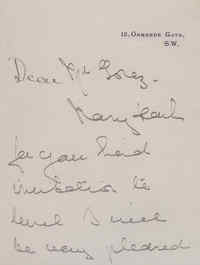 10, Ormonde Gate,
S.W.
Dear Mr
Many thanks
for your kind
invitation to
lunch I will
be very pleased